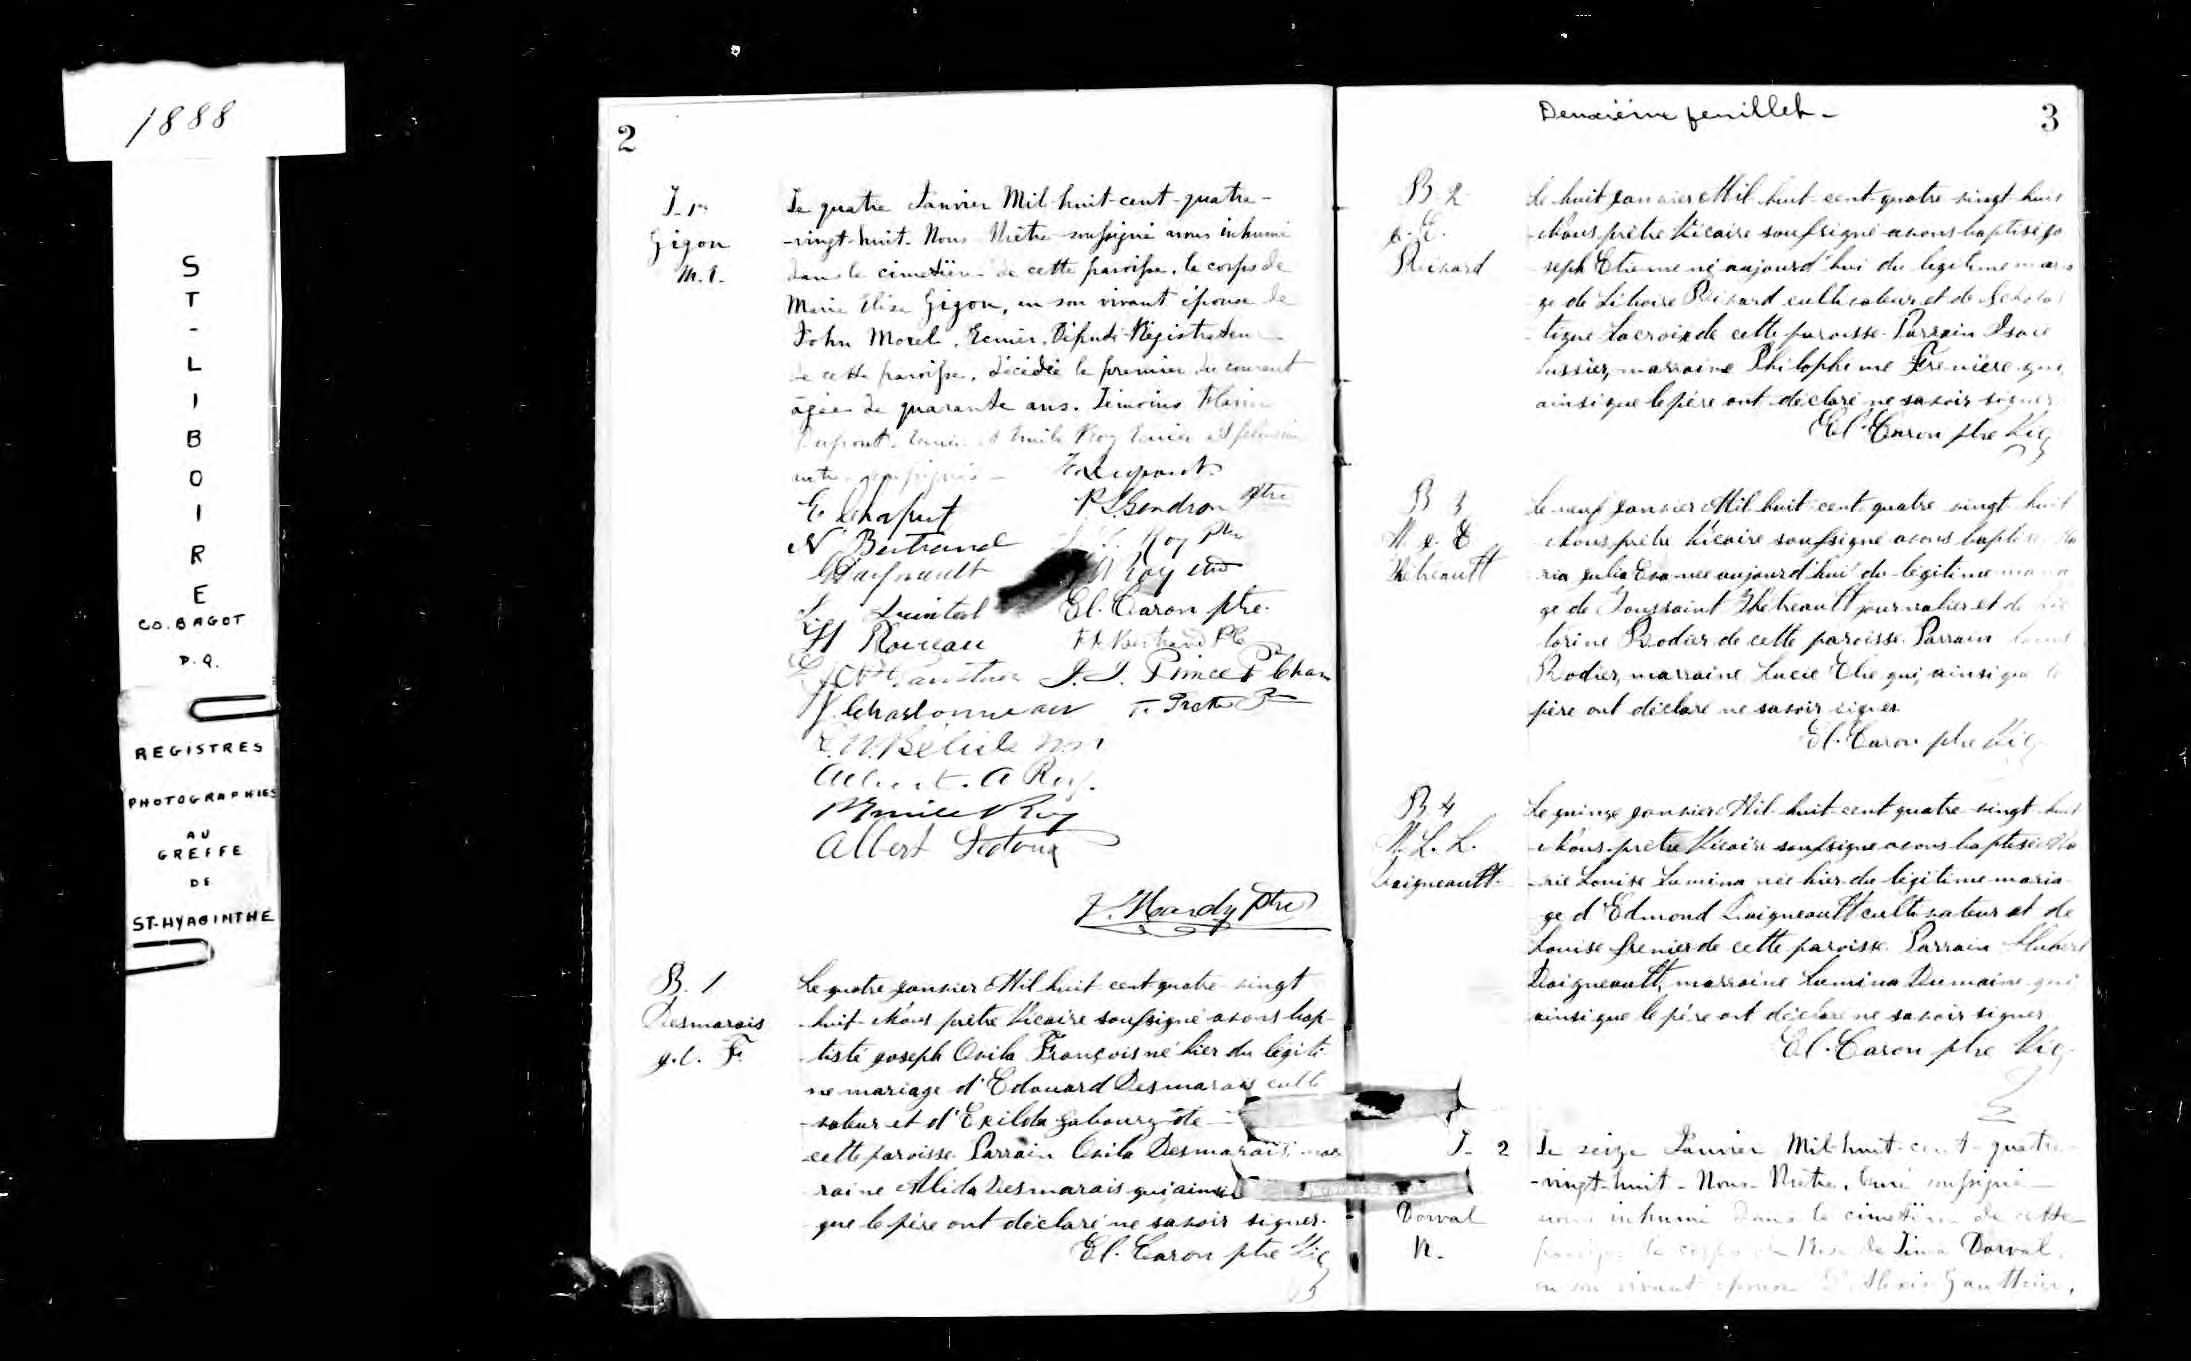 1888
ST-LIBOIRE
CO. BAGOT
P.Q.
REGISTRES
PHOTOGRAPHIES
AU
GREFFE
DE
ST-HYACINTHE
2
Gigon
M. E.
Le quatre Janvier Mil-huit-cent-quatre-
-vingt-huit. Nous Prêtre soussigné avons inhumé
dans le cimetière de cette paroisse, le corps de
Marie Elisa Gigon, en son vivant épouse de
John Morel, Ecuier, Député-Régistrateur
de cette paroisse, décédée le premier du courant
agée de quarante ans. Témoins
Emile Roy Ecuier et plusieurs
autres soussignés
E Chaput
P. L. Gendron Ptre
N Bertrand
Roy Ptre
El. Caron ptre.
J. Charbonneau
Albert. A Roy.
Emile Roy
Albert
Hardy Ptre
B. 1
Desmarais
J. O. F.
Le quatre janvier Mil huit cent quatre vingt
huit Nous prêtre Vicaire soussigné avons bap-
tisé Joseph Ovila François né hier du légiti-
me mariage d'Edouard Desmarais culti-
vateur et d'Exilda Gaboury de
cette paroisse. Parrain Ovila Desmarais, mar
raine Alida Desmarais qui ainsi
que le père ont déclaré ne savoir signer.
El. Caron ptre Vic
Deuxième feuillet -
3
B. 2
J. E.
Le huit janvier Mil huit cent quatre vingt huit
Nous prêtre Vicaire soussigné avons baptisé Jo
seph Etienne né aujourd'hui du légitime maria
ge de cultivateur et de Scholas
tique Lacroix de cette paroisse. Parrain Isaie
Lussier, marraine Philophime Frenière qui
ainsi que le père ont déclaré ne savoir signer
El. Caron ptre Vic
B 3
M. J. E
Thétreault
Le neuf janvier Mil huit cent quatre vingt huit
Nous prêtre Vicaire soussigné avons baptisé Ma
ria Julia Eva née aujourd'hui du légitime maria
ge de Toussaint Thétreault journalier et de Vic
torine Rodier de cette paroisse. Parrain Louis
Rodier, marraine Lucie Elie qui, ainsi que le
père ont déclaré ne savoir signer
El. Caron ptre Vic
B 4
M. L. L.
Daigneault
Le quinze janvier Mil huit cent quatre vingt huit
Nous prêtre Vicaire soussigné avons baptisé Ma
rie Louise Lumina née hier du légitime maria
ge d'Edmond Daigneault cultivateur et de
Louise Frenier de cette paroisse. Parrain Hubert
Daigneault, marraine Lumina Dumaine qui
ainsi que le père ont déclaré ne savoir signer
El. Caron ptre Vic
2
Dorval
R.
Le seize Janvier Mil-huit-cent-quatre-
-vingt-huit - Nous Prêtre, Curé soussigné
avons inhumé dans le cimetière de cette
paroisse le corps de Rose de Lima Dorval,
en son vivant épouse d'Alexis Gauthier,